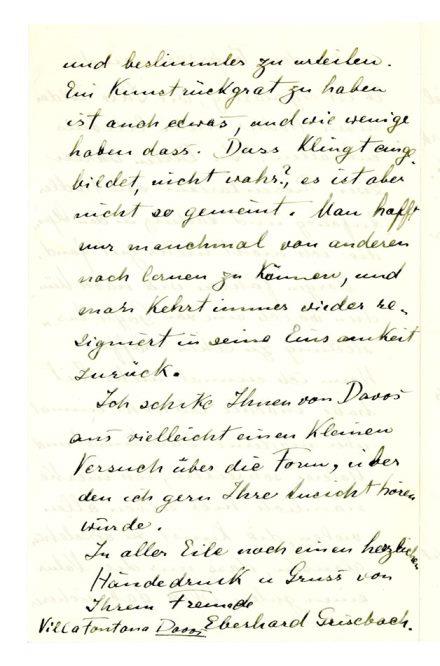 und bestimmter zu urteilen.
Ein Kunstrückgrat zu haben
ist auch etwas, und wie wenige
haben dass. Dass Klingt einge
bildet, nicht wahr?, es ist aber
nicht so gemeint. Man hofft
nur manchmal von anderen
noch lernen zu Können, und
man Kehrt immer wieder re-
signiert in seine Einsamkeit
zurück.
Ich schike Ihnen von Davos
aus vielleicht einen Kleinen
Versuch über die Form, über
den ich gern Ihre Ansicht hören
würde.
In aller Eile noch einen herzlichen
Händedruck u Gruss von
Ihrem Freunde
Villa Fontana Davos Eberhard Grisebach.